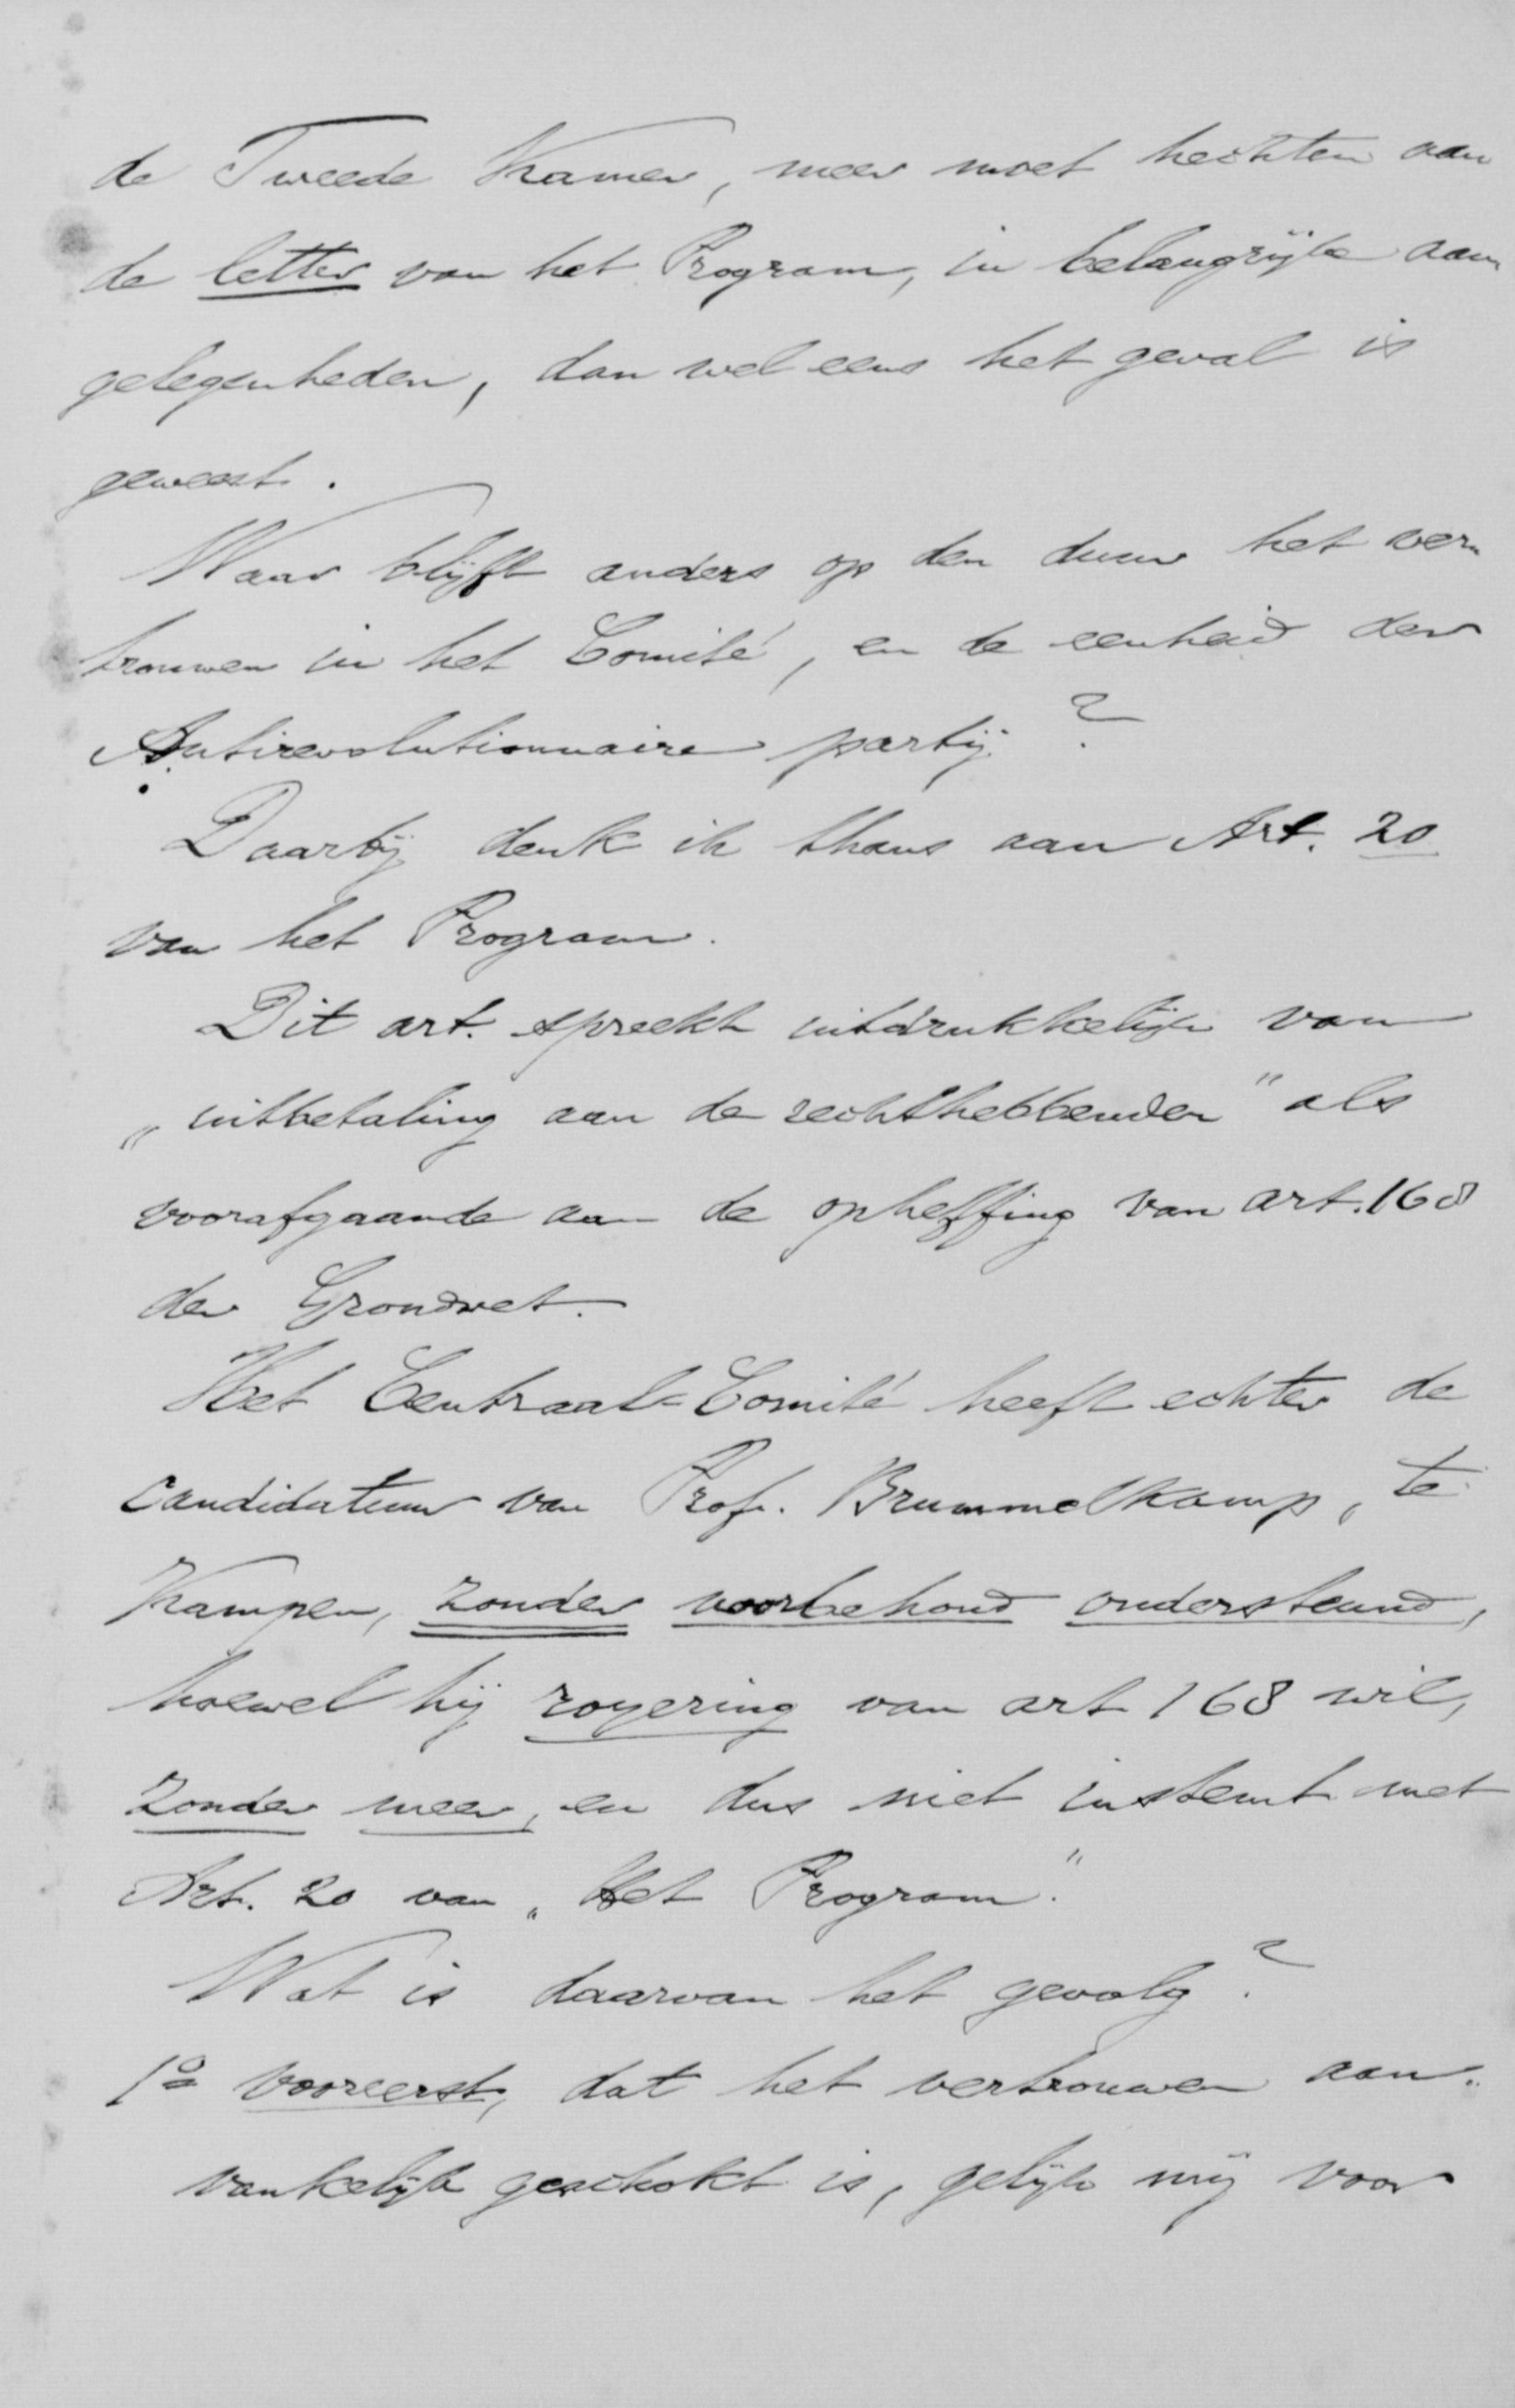 de Tweede Kamer, meer moet hechten aan
de letter van het Program, in belangrijke aan
gelegenheden, dan wel eens het geval is
geweest.
Waar blijft anders op den duur het ver„
trouwen in het Comité, en de eenheid der
Antirevolutionnaire partij?
Daarbij denk ik thans aan Art. 20
van het Program.
Dit art. spreekt uitdrukkelijk van
„uitbetaling aan de rechthebbenden" als
voorafgaande aan de opheffing van art. 168
der Grondwet.
Het Centraal=Comité heeft echter de
candidatuur van Prof. Brummelkamp, te
Kampen, zonder voorbehoud ondersteund,
hoewel hij royering van art 168 wil,
zonder meer, en dus niet instemt met
Art. 20 van „Het Program."
Wat is daarvan het gevolg?
1º vooreerst, dat het vertrouwen aan„
vankelijk geschokt is, gelijk mij voor